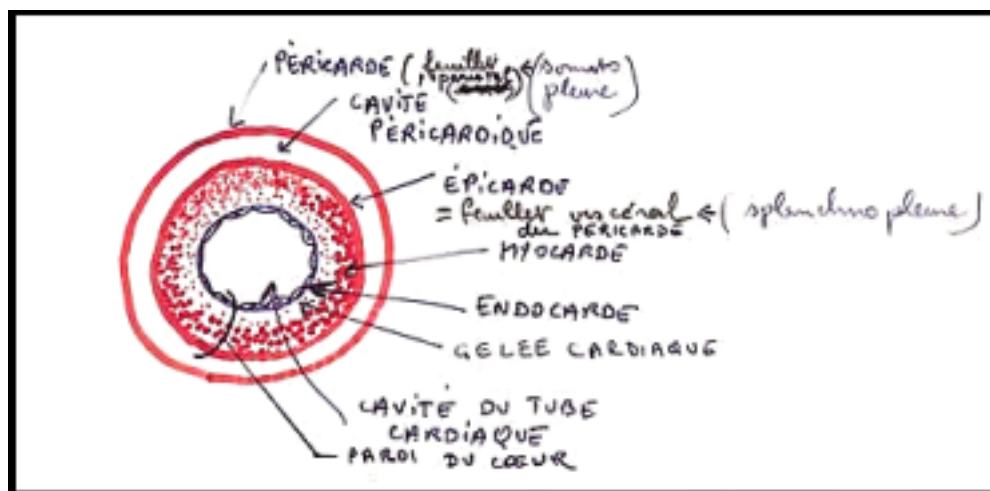 PÉRICARDE (feuillet pariétal) ← (somato
pleure)
CAVITÉ
PÉRICARDIQUE
ÉPICARDE
= feuillet viscéral ← (splanchno pleure)
du PÉRICARDE
MYOCARDE
ENDOCARDE
GELÉE CARDIAQUE
CAVITÉ DU TUBE
CARDIAQUE
PAROI DU CŒUR